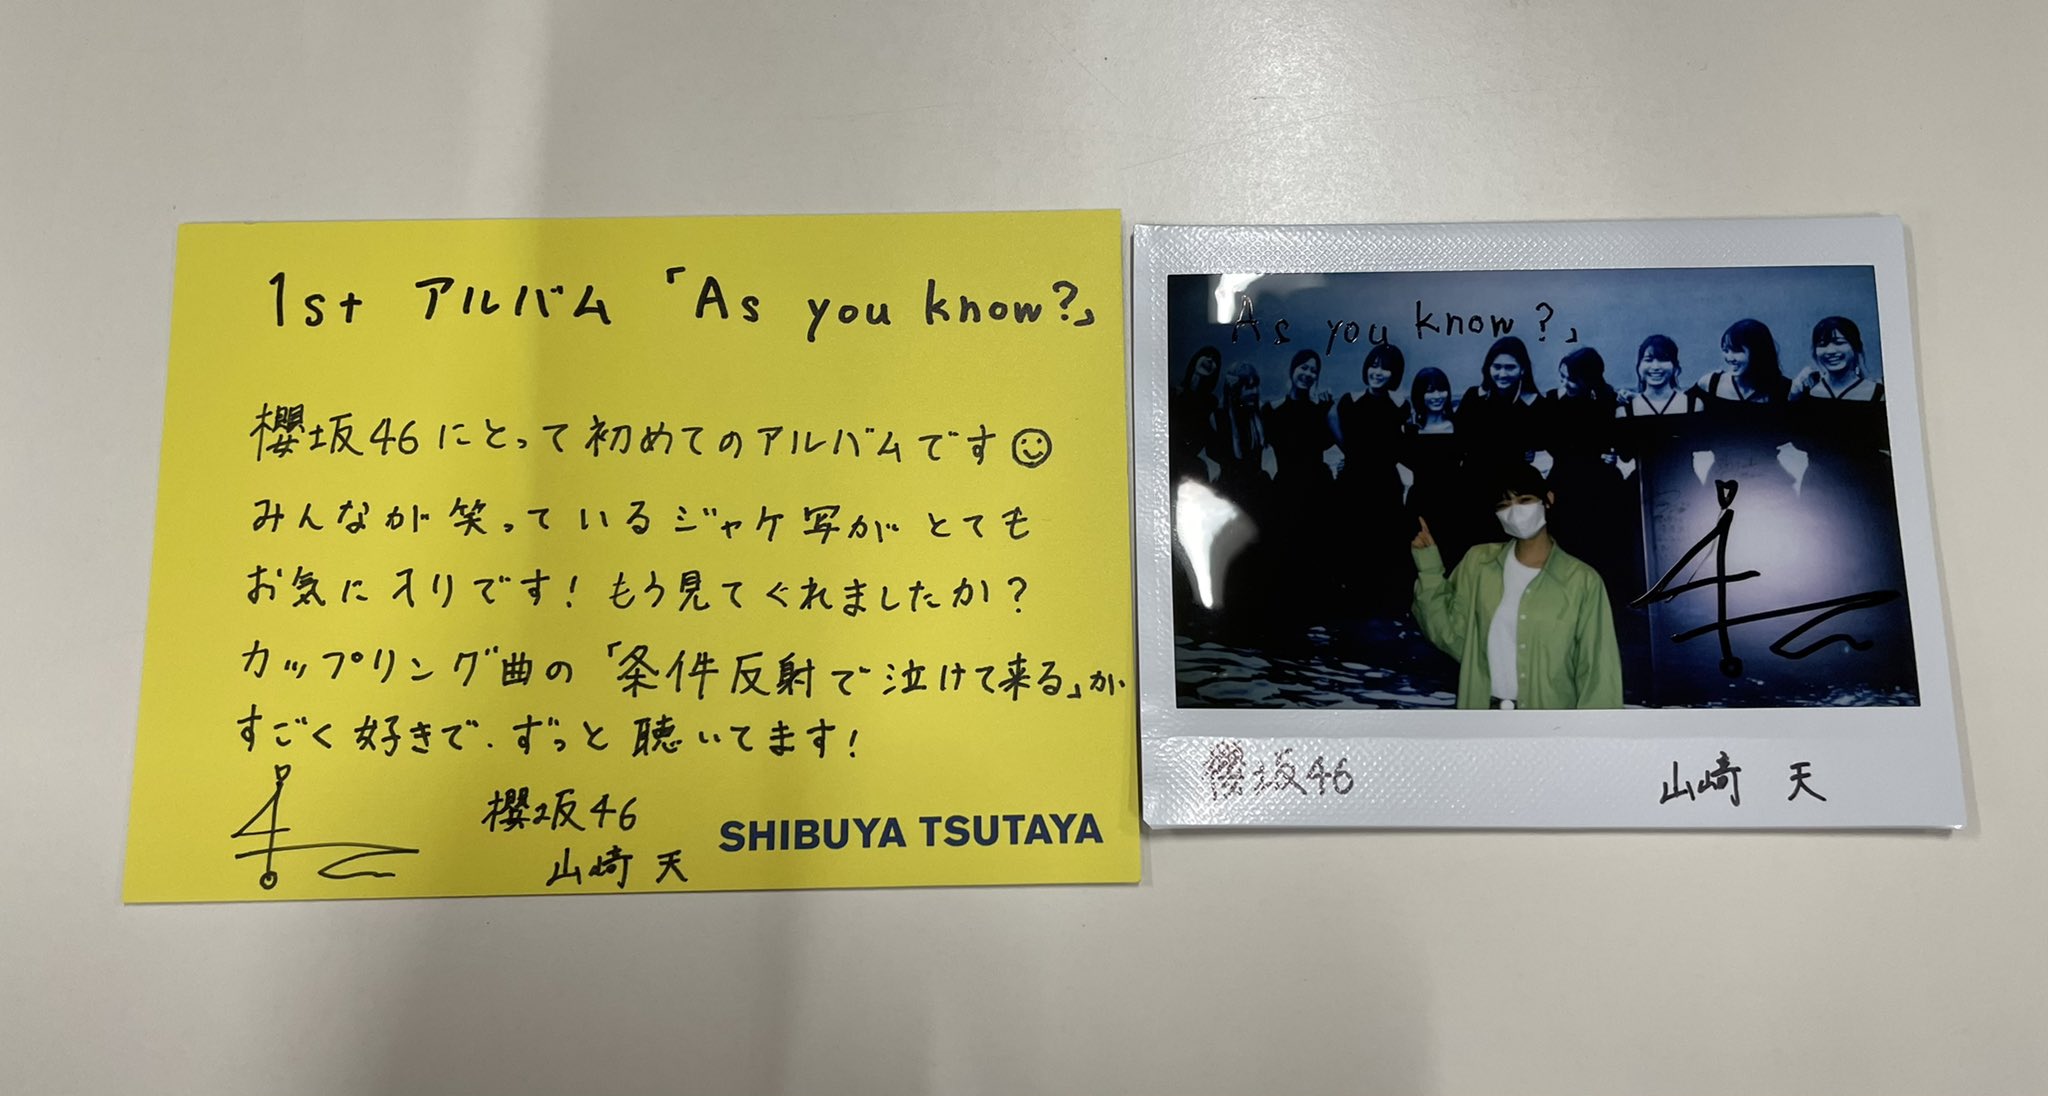 1st アルバム「As you know?」
櫻坂46にとって初めてのアルバムです
みんなが笑っているジャケ写がとても
お気に入りです!もう見てくれましたか?
カップリング曲の「条件反射で泣けて来る」が
すごく好きで、ずっと聴いてます!
櫻坂46
山﨑 天
SHIBUYA TSUTAYA
As you know?」
櫻坂46
山﨑 天